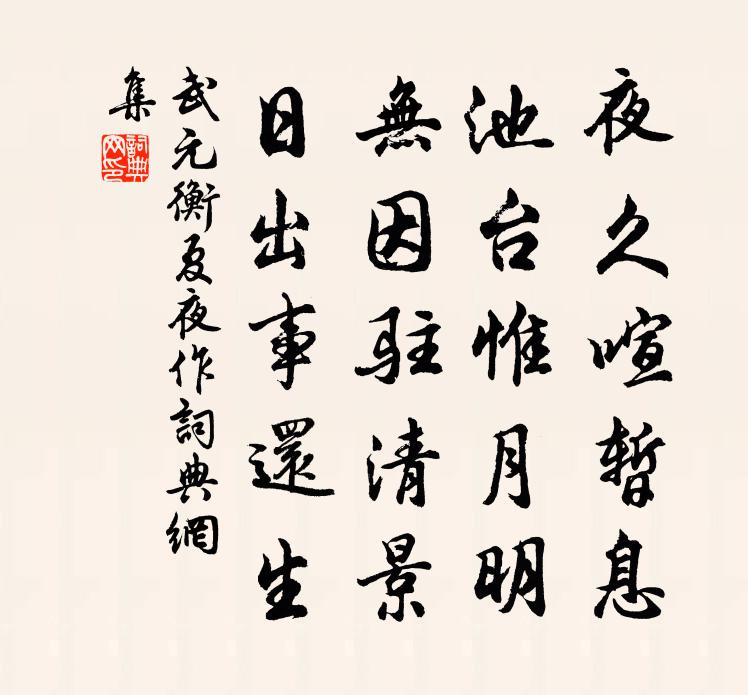 夜久喧暫息
池台惟月明
無因駐清景
日出事還生
武元衡夏夜作詞典網
集
詞典
网印